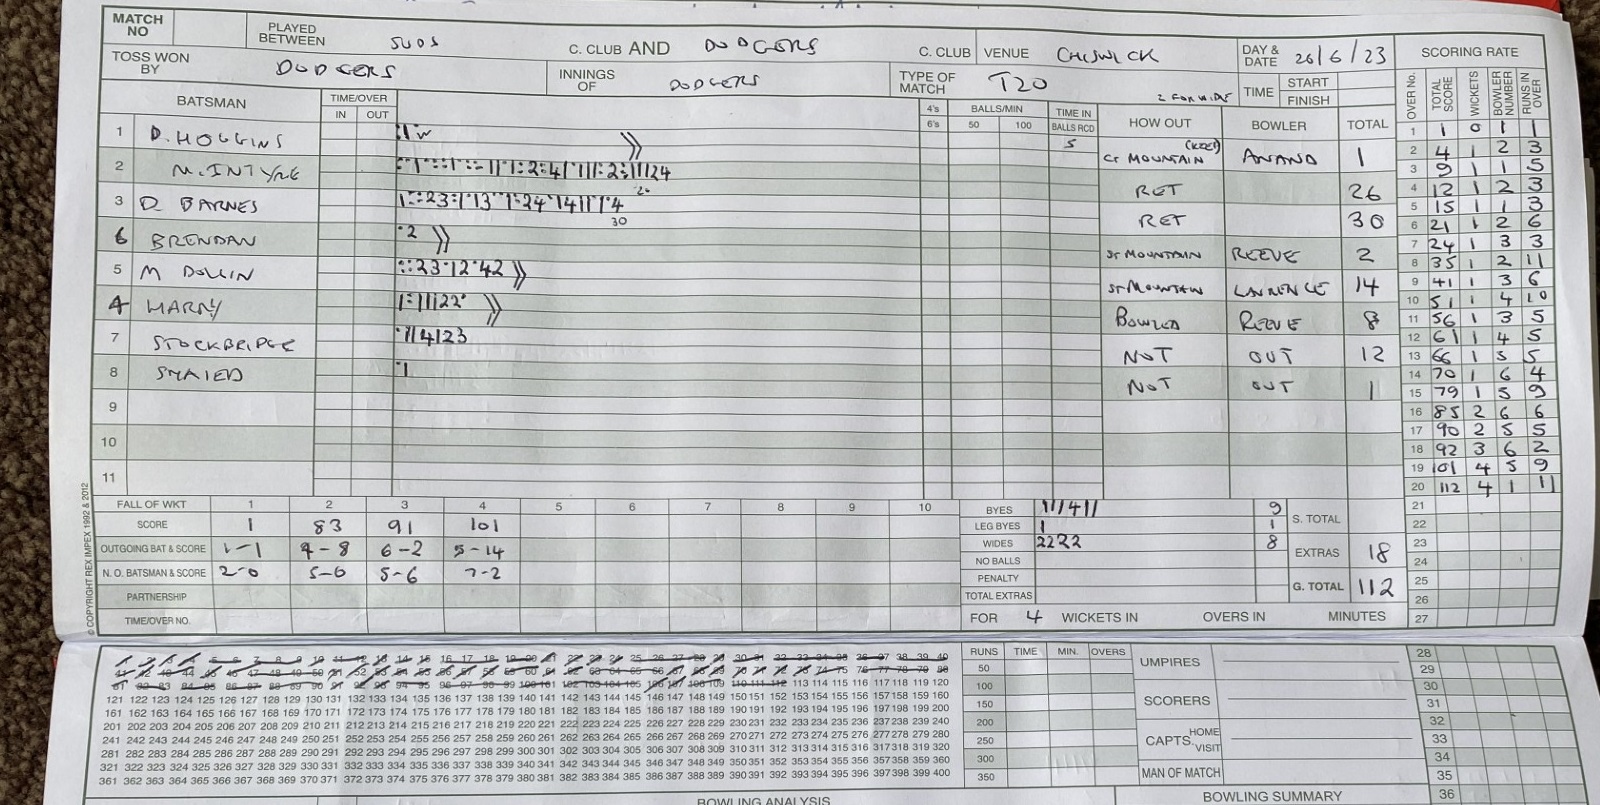 MATCH NO PLAYED BETWEEN SUDS C. CLUB AND DODGERS C. CLUB VENUE CHISWICK DAY & DATE 26/6/23 SCORING RATE
TOSS WON BY DODGERS INNINGS OF DODGERS TYPE OF MATCH T20 2 FOR WIDE TIME START FINISH
BATSMAN TIME/OVER IN OUT 4's 6's BALLS/MIN 50 100 TIME IN BALLS RCD HOW OUT BOWLER TOTAL
1 D. HOGGINS 5 CT MOUNTAIN (KEEP) ANAND 1
2 M.INTYRE 26 RET 26
3 D BARNES 30 RET 30
6 BRENDAN ST MOUNTAIN REEVE 2
5 M DOLLIN ST MOUNTAIN LAWRENCE 14
4 HARRY BOWLED REEVE 8
7 STOCKBRIDGE NOT OUT 12
8 SMAIED NOT OUT 1
9
10
11
OVER No. TOTAL SCORE WICKETS BOWLER NUMBER RUNS IN OVER
1 1 0 1 1
2 4 1 2 3
3 9 1 1 5
4 12 1 2 3
5 15 1 1 3
6 21 1 2 6
7 24 1 3 3
8 35 1 2 11
9 41 1 3 6
10 51 1 4 10
11 56 1 3 5
12 61 1 4 5
13 66 1 5 5
14 70 1 6 4
15 79 1 5 9
16 85 2 6 6
17 90 2 5 5
18 92 3 6 2
19 101 4 5 9
20 112 4 1 11
21
22
23
24
25
26
27
© COPYRIGHT REX IMPEX 1992 & 2012
FALL OF WKT 1 2 3 4 5 6 7 8 9 10
SCORE 1 83 91 101
OUTGOING BAT & SCORE 1-1 4-8 6-2 5-14
N. O. BATSMAN & SCORE 2-0 5-6 5-6 7-2
PARTNERSHIP
TIME/OVER NO.
BYES 111411 9 S. TOTAL
LEG BYES 1 1
WIDES 2222 8 EXTRAS 18
NO BALLS
PENALTY G. TOTAL 112
TOTAL EXTRAS
FOR 4 WICKETS IN OVERS IN MINUTES
113 114 115 116 117 118 119 120
121 122 123 124 125 126 127 128 129 130 131 132 133 134 135 136 137 138 139 140 141 142 143 144 145 146 147 148 149 150 151 152 153 154 155 156 157 158 159 160
161 162 163 164 165 166 167 168 169 170 171 172 173 174 175 176 177 178 179 180 181 182 183 184 185 186 187 188 189 190 191 192 193 194 195 196 197 198 199 200
201 202 203 204 205 206 207 208 209 210 211 212 213 214 215 216 217 218 219 220 221 222 223 224 225 226 227 228 229 230 231 232 233 234 235 236 237 238 239 240
241 242 243 244 245 246 247 248 249 250 251 252 253 254 255 256 257 258 259 260 261 262 263 264 265 266 267 268 269 270 271 272 273 274 275 276 277 278 279 280
281 282 283 284 285 286 287 288 289 290 291 292 293 294 295 296 297 298 299 300 301 302 303 304 305 306 307 308 309 310 311 312 313 314 315 316 317 318 319 320
321 322 323 324 325 326 327 328 329 330 331 332 333 334 335 336 337 338 339 340 341 342 343 344 345 346 347 348 349 350 351 352 353 354 355 356 357 358 359 360
361 362 363 364 365 366 367 368 369 370 371 372 373 374 375 376 377 378 379 380 381 382 383 384 385 386 387 388 389 390 391 392 393 394 395 396 397 398 399 400
RUNS TIME MIN. OVERS
50
100
150
200
250
300
350
UMPIRES
SCORERS
CAPTS. HOME VISIT
MAN OF MATCH
28
29
30
31
32
33
34
35
36
BOWLING ANALYSIS BOWLING SUMMARY